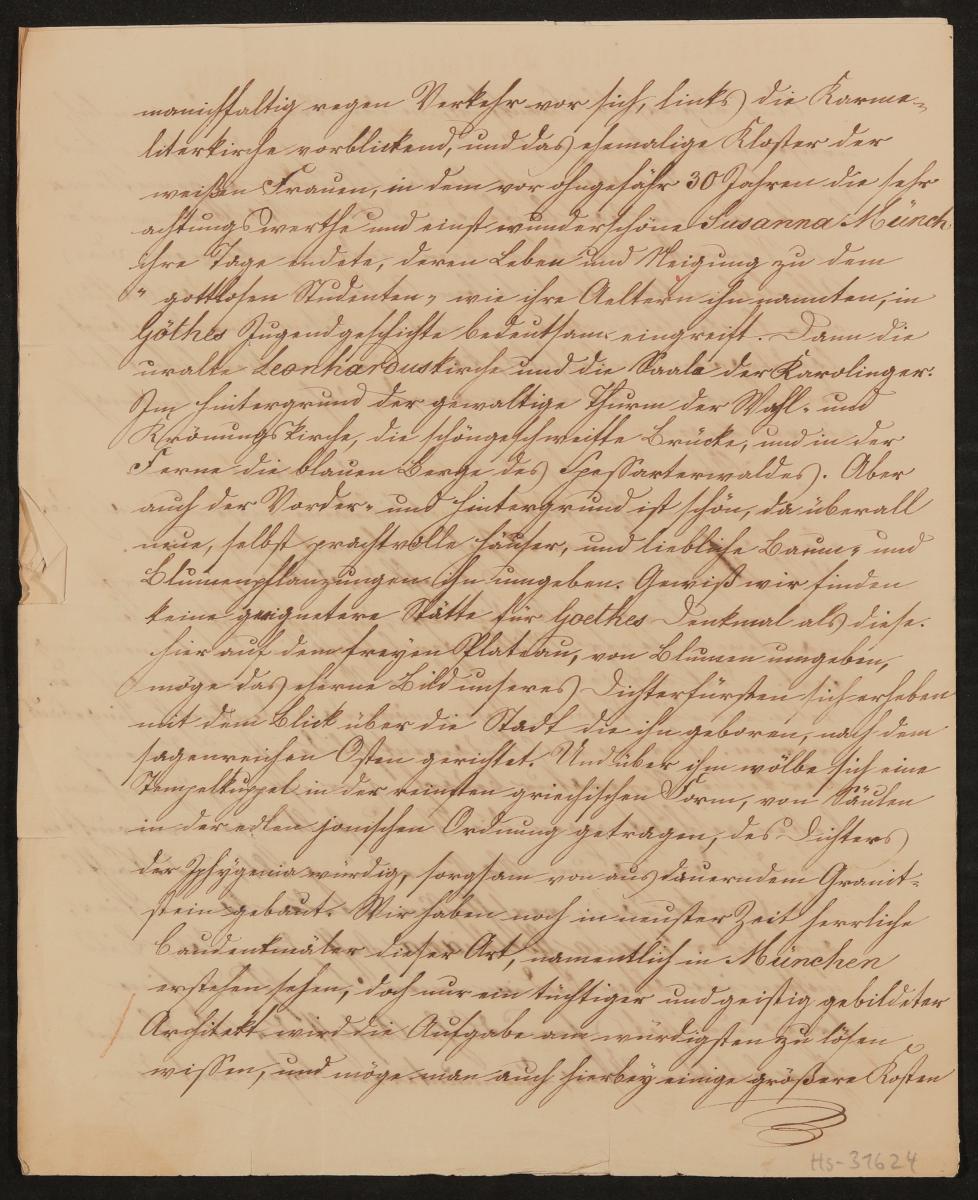 manichfaltig regen Verkehr vor sich, links die Karme-
literkirche vorblickend, und das ehemalige Kloster der
weißen Frauen, in dem vor ohngefähr 30 Jahren die sehr
achtungswerthe und einst wunderschöne Susanna Münch
ihre Tage endete, deren Leben und Neigung zu dem
"gottlosen Studenten" wie ihre Aeltern ihn nannten, in
Göthes Jugendgeschichte bedeutsam eingreift. Dann die
uralte Leonharduskirche und die Saala der Karolinger.
Im Hintergrund der gewaltige Thurm der Wahl- und
Krönungskirche, die schöngeschweifte Brücke, und in der
Ferne die blauen Berge des Spessarterwaldes. Aber
auch der Vorder- und Hintergrund ist schön, da überall
neue, selbst prachtvolle Häuser, und liebliche Baum- und
Blumenpflanzungen ihn umgeben. Gewiß wir finden
keine geeignetere Stätte für Goethes Denkmal als diese.
Hier auf dem freyen Plateau, von Blumen umgeben,
möge das eherne Bild unseres Dichterfürsten sich erheben
mit dem Blick über die Stadt die ihn geboren, nach dem
sagenreichen Osten gerichtet. Und über ihm wölbe sich eine
Tempelkuppel in der reinsten griechischen Form, von Säulen
in der edlen jonischen Ordnung getragen, des Dichters
der Iphygenia würdig, sorgsam von ausdauerndem Granit-
stein gebaut. Wir haben noch in neuster Zeit herrliche
Baudenkmäler dieser Art, namentlich in München
erstehen sehen, doch nur ein tüchtiger und geistig gebildeter
Architekt wird die Aufgabe am würdigsten zu lösen
wissen, und möge man auch hierbey einige größere Kosten
Hs-31624